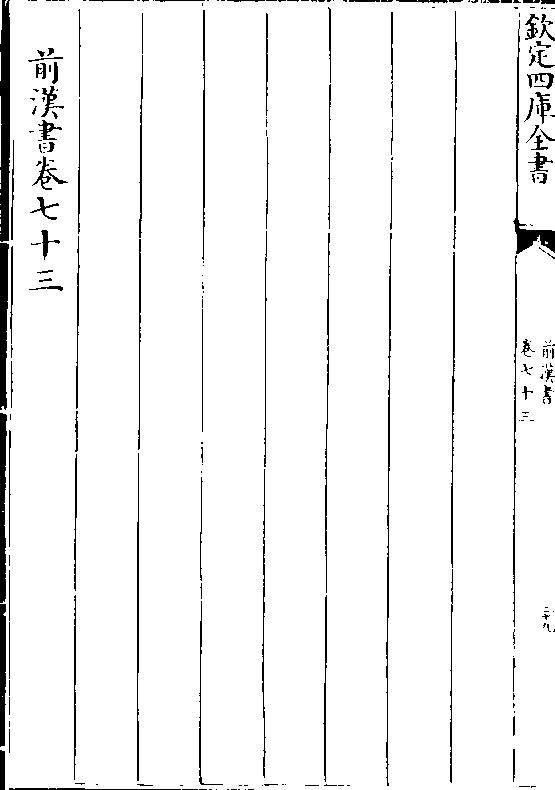 欽定四庫全書
前漢書
卷七十三
三十九
前漢書卷七十三